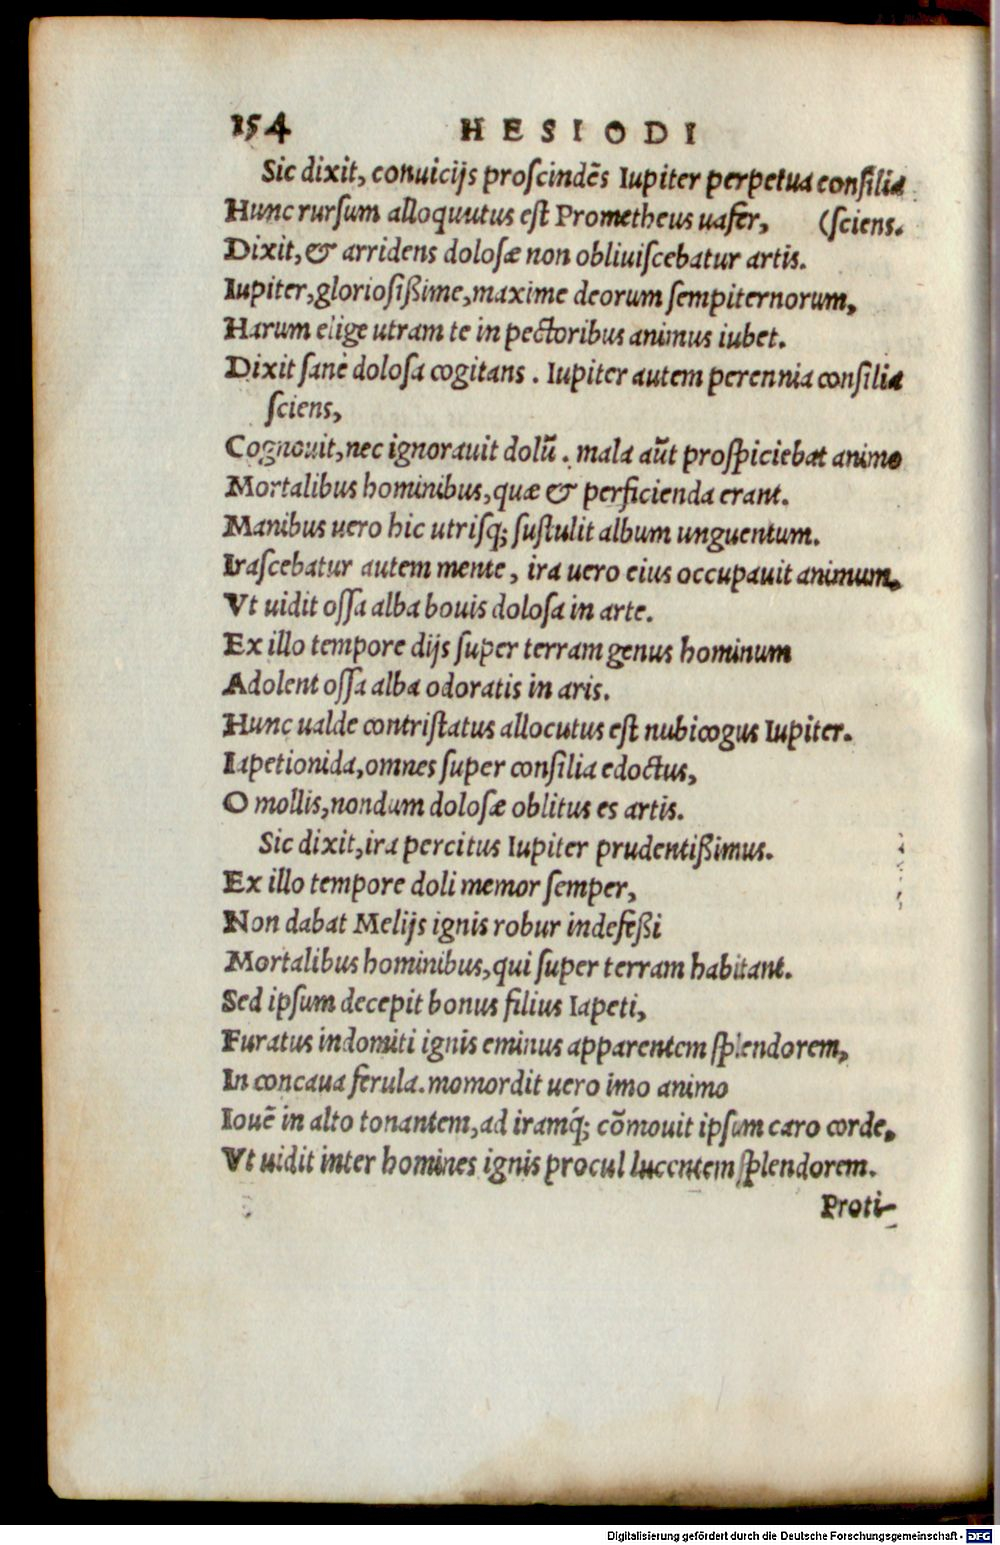 154 HESIODI
Sic dixit, conuicijs proscindēs Iupiter perpetua consilia
Hunc rursum alloquutus est Prometheus uafer, (sciens.
Dixit, & arridens dolosæ non obliuiscebatur artis.
Iupiter, gloriosißime, maxime deorum sempiternorum,
Harum elige utram te in pectoribus animus iubet.
Dixit sanè dolosa cogitans. Iupiter autem perennia consilia
sciens,
Cognouit, nec ignorauit dolū. mala aūt prospiciebat animo
Mortalibus hominibus, quæ & perficienda erant.
Manibus uero hic utrisq; sustulit album unguentum.
Irascebatur autem mente, ira uero eius occupauit animum,
Vt uidit ossa alba bouis dolosa in arte.
Ex illo tempore dijs super terram genus hominum
Adolent ossa alba odoratis in aris.
Hunc ualde contristatus allocutus est nubicogus Iupiter.
Iapetionida, omnes super consilia edoctus,
O mollis, nondum dolosæ oblitus es artis.
Sic dixit, ira percitus Iupiter prudentißimus.
Ex illo tempore doli memor semper,
Non dabat Melijs ignis robur indefeßi
Mortalibus hominibus, qui super terram habitant.
Sed ipsum decepit bonus filius Iapeti,
Furatus indomiti ignis eminus apparentem splendorem,
In concaua ferula. momordit uero imo animo
Iouē in alto tonantem, ad iramq́; cōmouit ipsum caro corde,
Vt uidit inter homines ignis procul lucentem splendorem.
Proti-
Digitalisierung gefördert durch die Deutsche Forschungsgemeinschaft - DFG